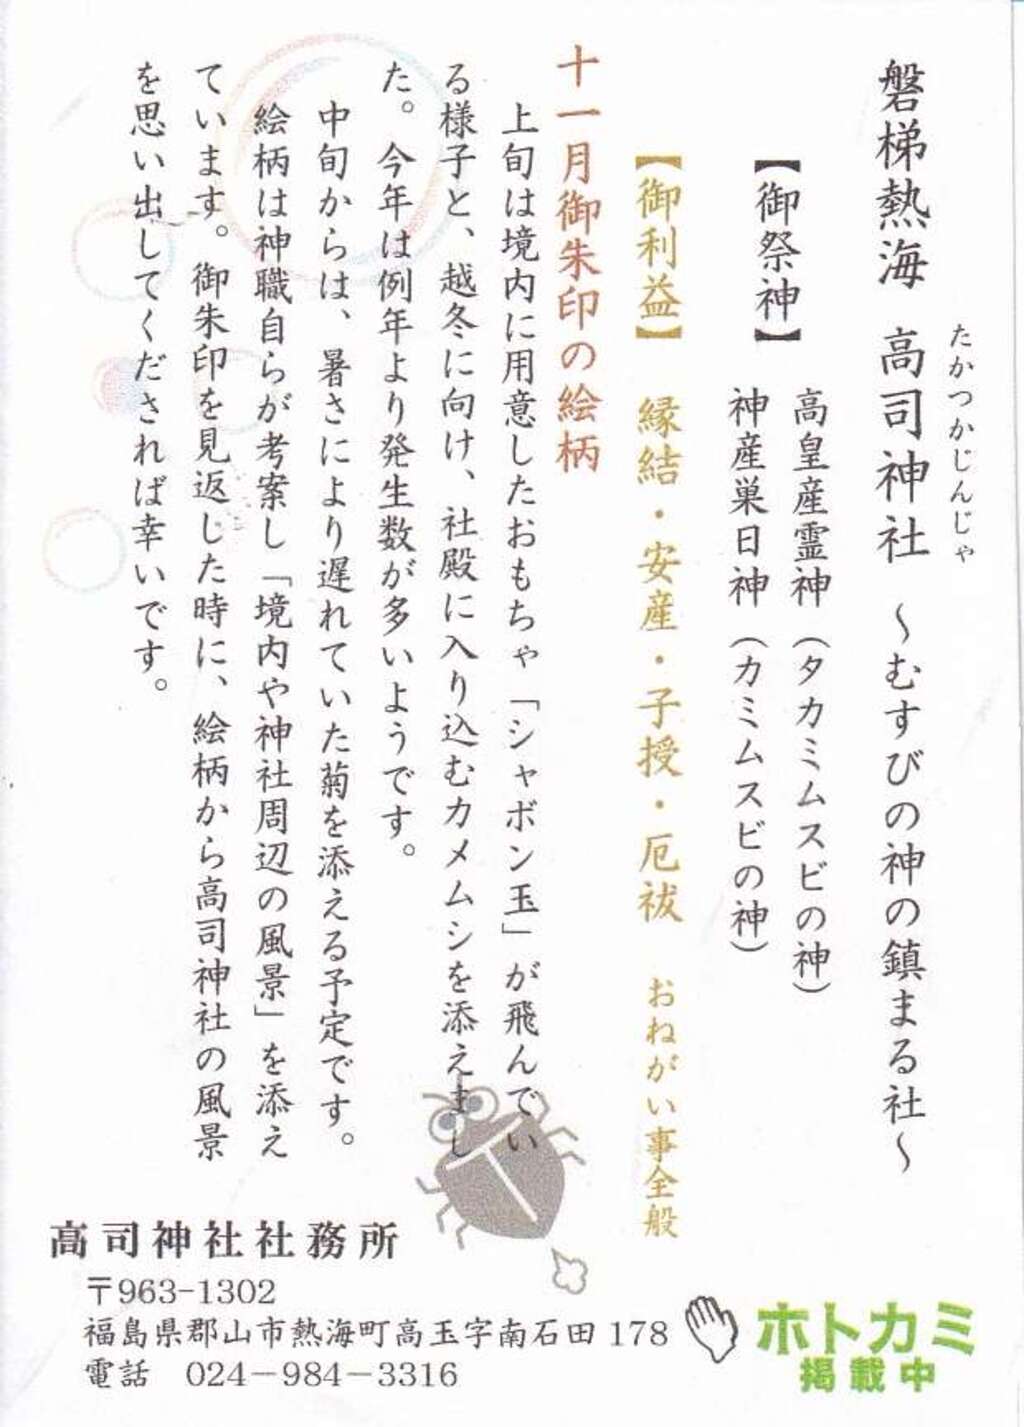 たかつかじんじゃ
磐梯熱海 高司神社 〜むすびの神の鎮まる社〜
【御祭神】 高皇産霊神（タカミムスビの神）
神産巣日神（カミムスビの神）
【御利益】 縁結・安産・子授・厄祓 おねがい事全般
十一月御朱印の絵柄
上旬は境内に用意したおもちゃ「シャボン玉」が飛んでい
る様子と、越冬に向け、社殿に入り込むカメムシを添えまし
た。今年は例年より発生数が多いようです。
中旬からは、暑さにより遅れていた菊を添える予定です。
絵柄は神職自らが考案し「境内や神社周辺の風景」を添え
ています。御朱印を見返した時に、絵柄から高司神社の風景
を思い出してくだされば幸いです。
高司神社社務所
〒963-1302
福島県郡山市熱海町高玉字南石田 178
電話 024－984－3316
ホトカミ
掲載中